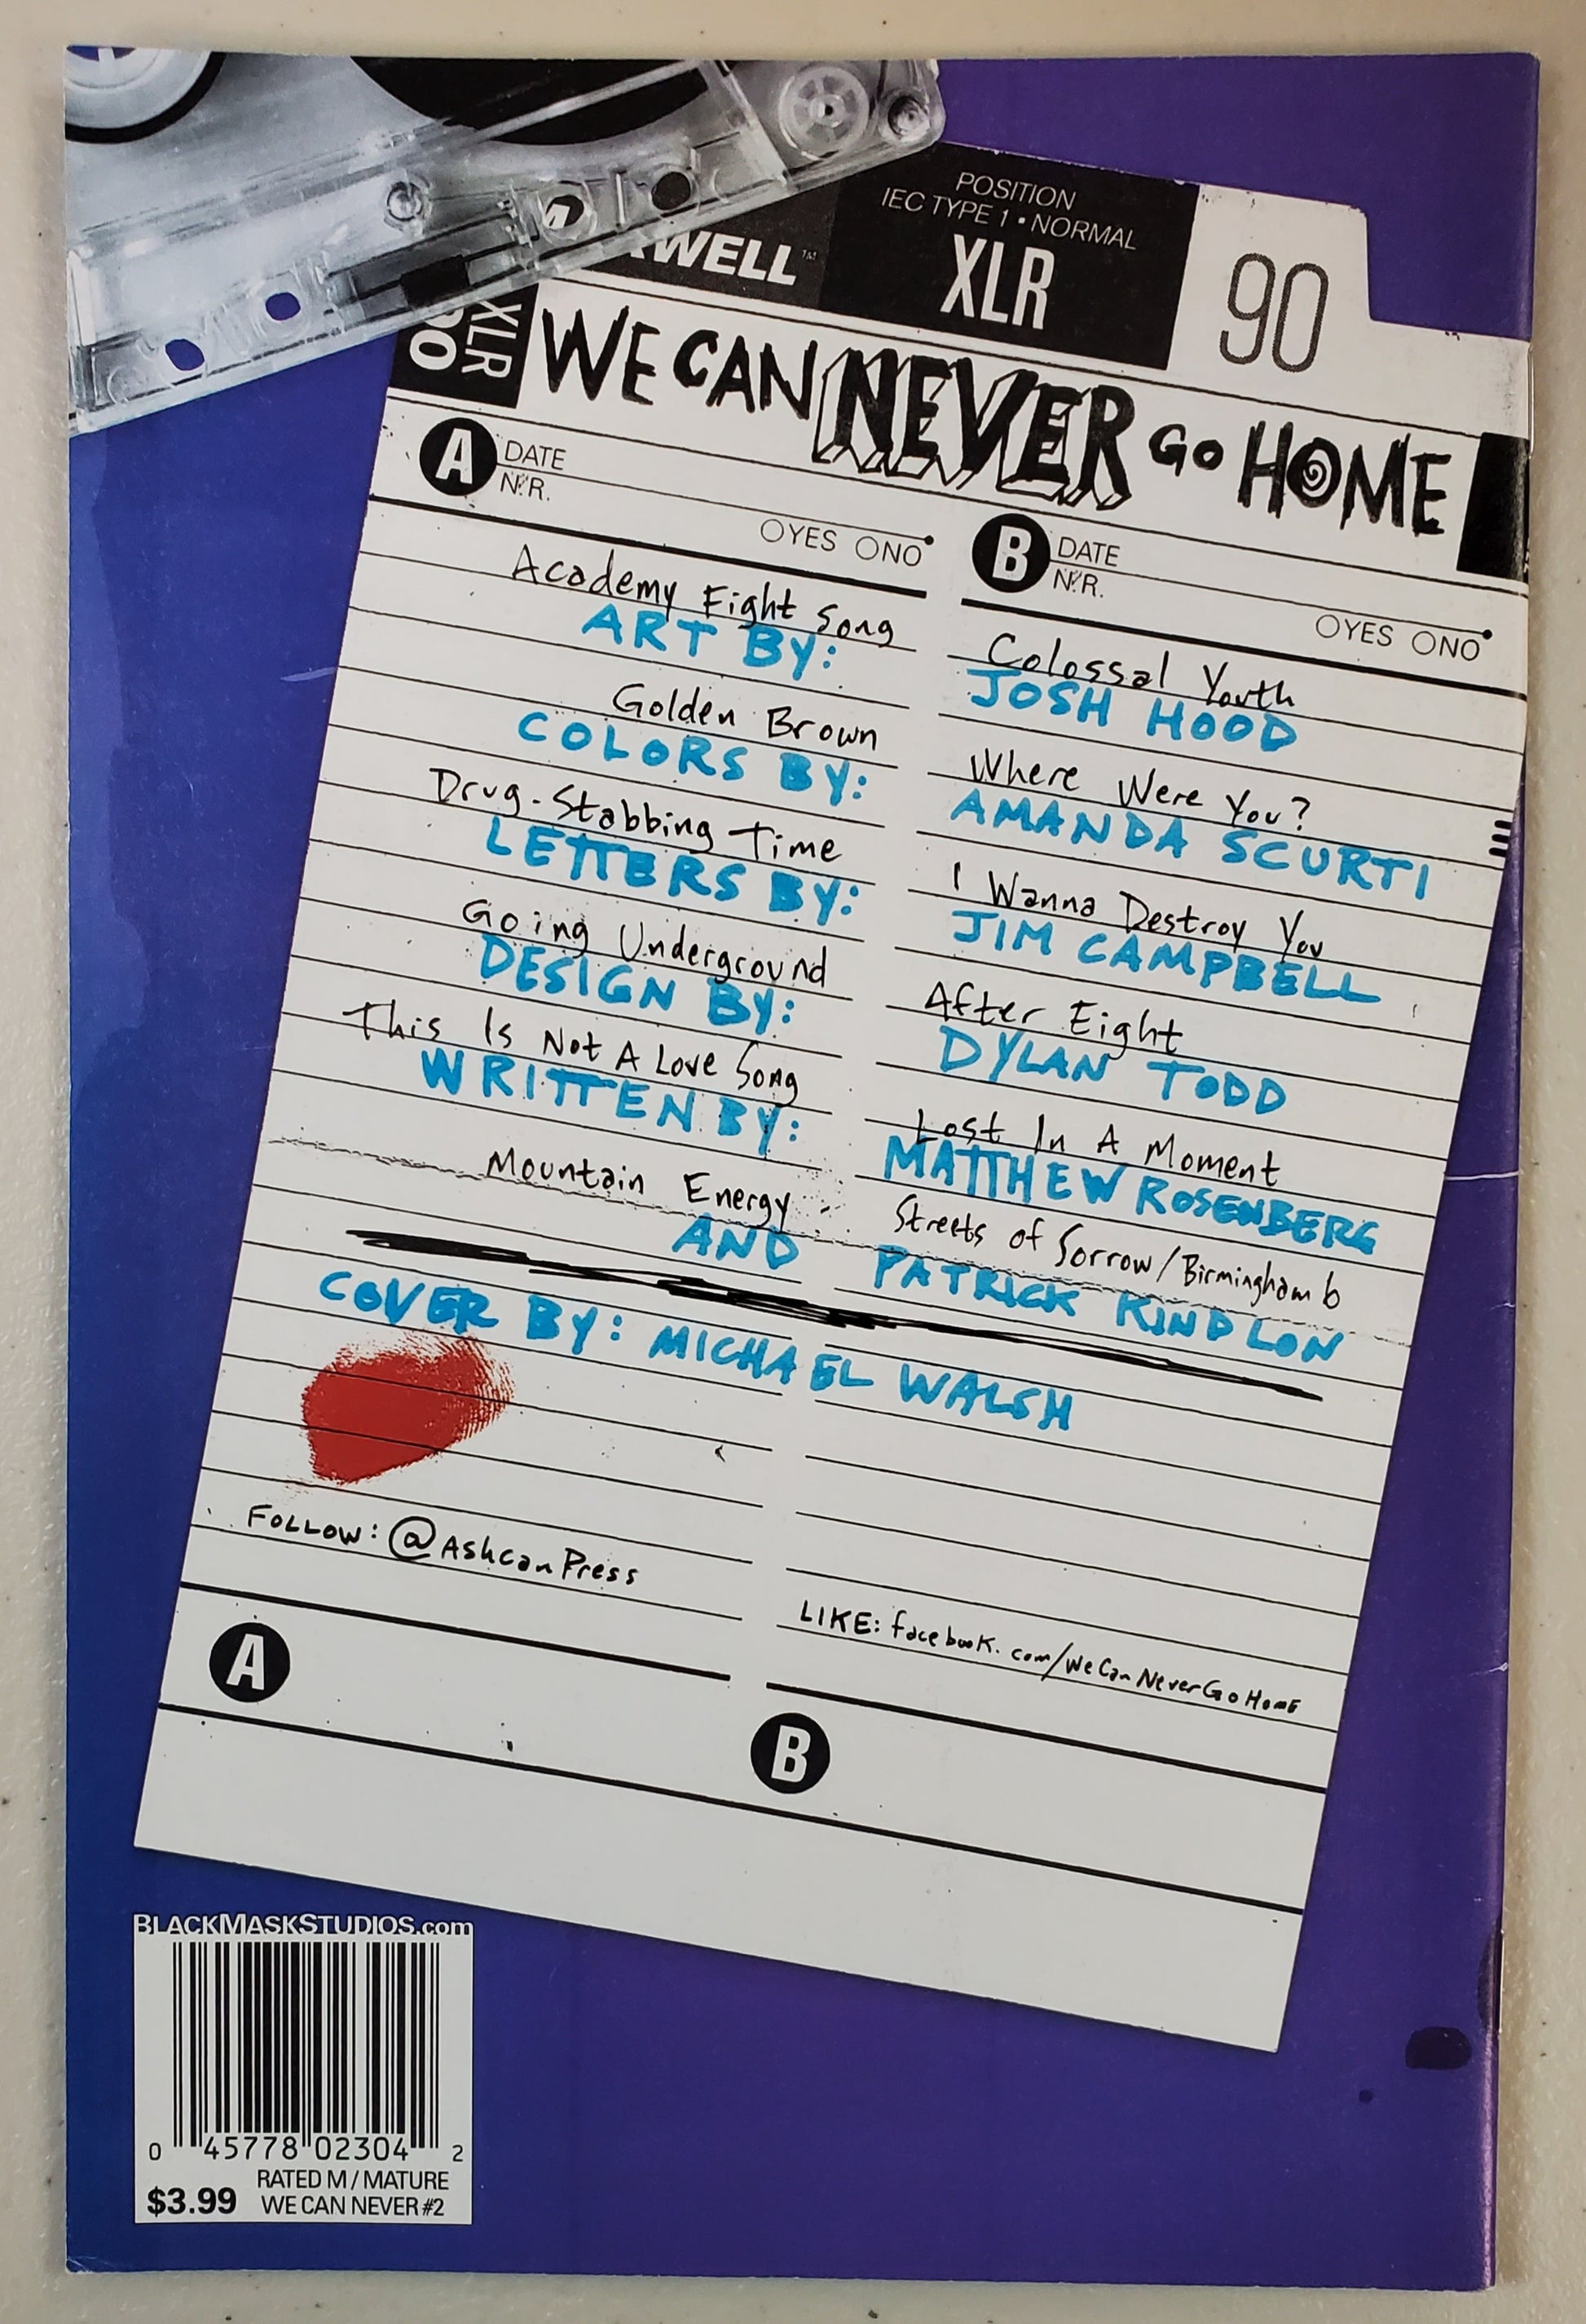 POSITION
IEC TYPE 1 • NORMAL
XWELL™
XLR
90
XLR
WE CAN NEVER GO HOME
A DATE
N.R.
OYES ONO
B DATE
N.R.
OYES ONO
Academy Fight Song
ART BY:
Golden Brown
COLORS BY:
Drug-Stabbing Time
LETTERS BY:
Going Underground
DESIGN BY:
This Is Not A Love Song
WRITTEN BY:
Mountain Energy
AND
Colossal Youth
JOSH HOOD
Where Were You?
AMANDA SCURTI
I Wanna Destroy You
JIM CAMPBELL
After Eight
DYLAN TODD
Lost In A Moment
MATTHEW ROSENBERG
Streets of Sorrow/Birmingham 6
PATRICK KINDLON
COVER BY: MICHAEL WALSH
FOLLOW: @AshcanPress
LIKE: facebook.com/WeCanNeverGoHome
A
B
BLACKMASKSTUDIOS.com
0 45778 02304 2
RATED M / MATURE
$3.99 WE CAN NEVER #2